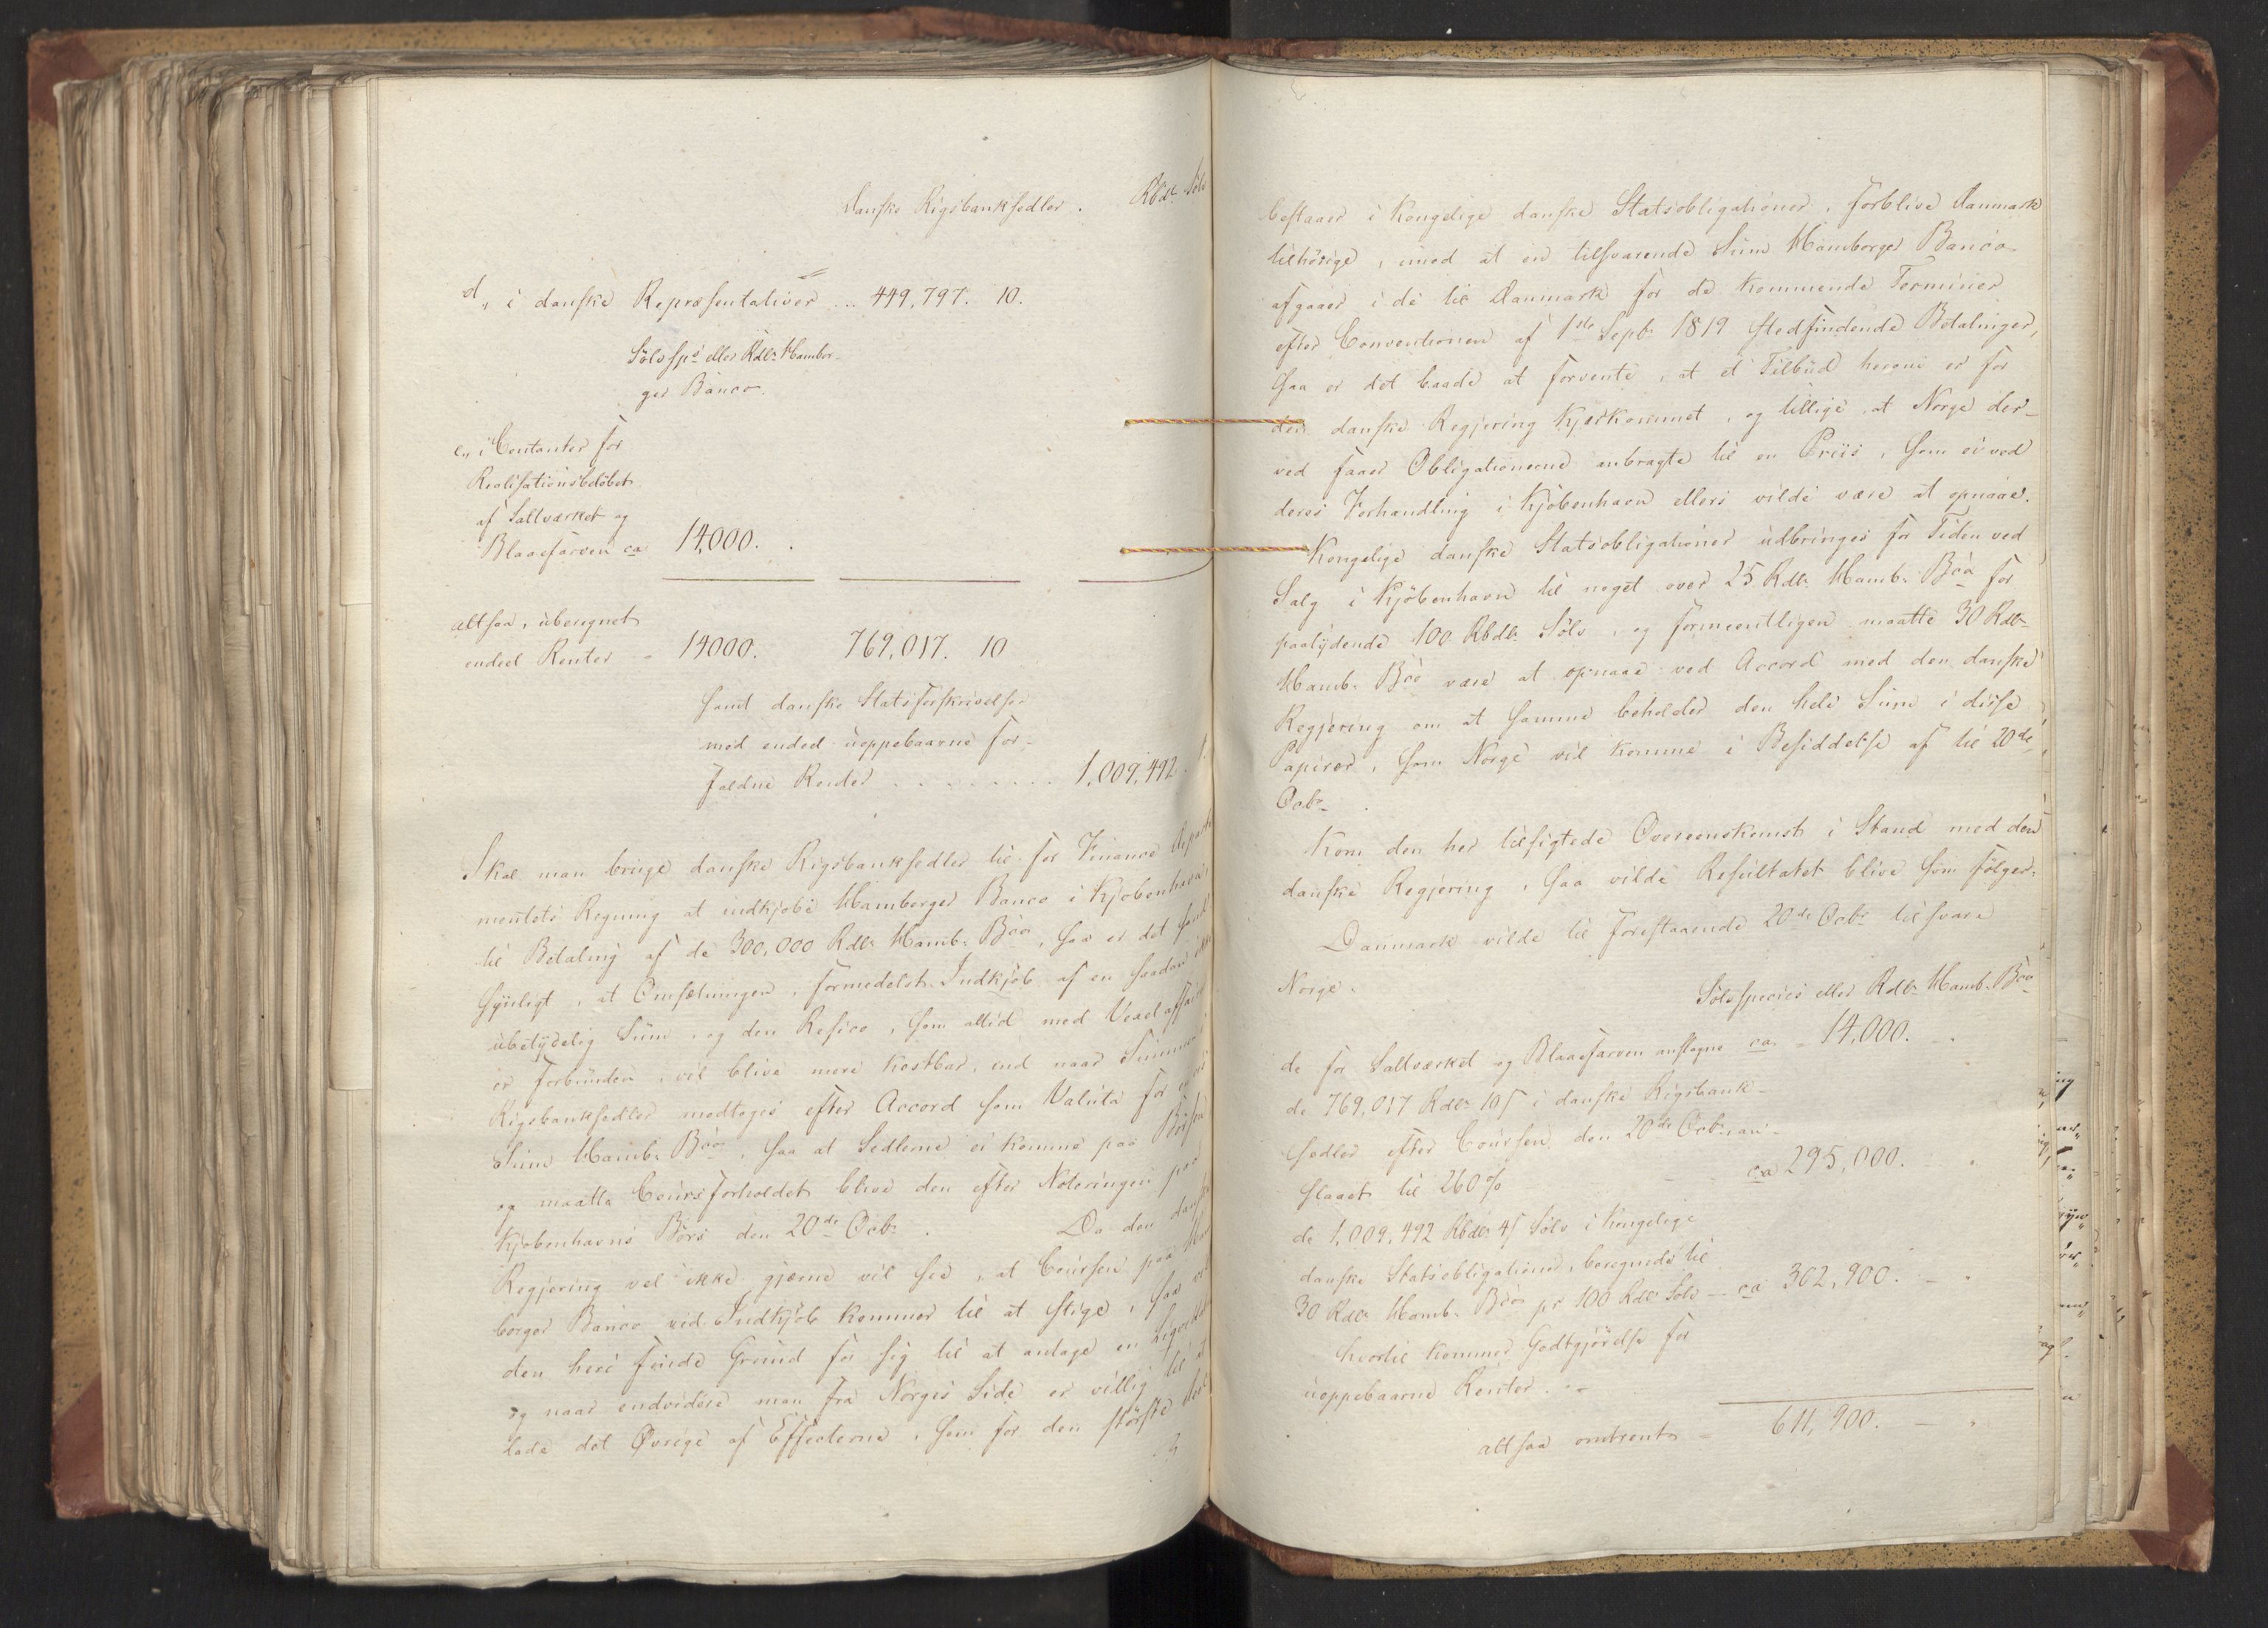 Danske Rigsbanksedler. Rbdlr Sölv
d, i danske Repræsentativer ... 449,797. 10.
Sölvspe eller Rdlr Hambor-
ger Banco.
e, i Contanter for
Realisationsbelöbet
af Saltværket og
Blaaefarven ca 14000.
altsaa, uberegnet
endeel Renter 14000. 769,017. 10
samt danske Statsforskrivelser
med endeel uoppebaarne for-
faldne Renter . . . . . . . . . 1,009,492.
Skal man bruge danske Rigsbanksedler til for Finance Departe
mentets Regning at indkjöbe Hamborger Banco i Kjöbenhavn,
til Betaling af de 300,000 Rdlr Hamb. Bco, saa er det sand
synligt, at Omsætningen, formedelst Indkjöb af en saadan ikke
ubetydelig Sum, og den Risico, som altid med Vexelaffairer
er forbunden, vil blive mere kostbar, end naar Summen
Rigsbanksedler modtoges efter Accord som Valuta for en
Sum Hamb. Bco, saa at Sedlerne ei komme paa Börsen
og maatte Coursforholdet blive den efter Noteringen paa
Kjöbenhavns Börs den 20de Octbr. Da den danske
Regjering vel ikke gjerne vil see, at Coursen paa Ham
borger Banco ved Indkjöb kommer til at stige, saa vil
den heri finde Grund for sig til at antage en
og naar endvidere man fra Norges Side er villig til at
lade det Övrige af Effecterne, som for den störste Deel
bestaaer i Kongelige danske Statsobligationer, forblive Danmark
tilhörige, imod at en tilsvarende Sum Hamborger Banco
afgaaer i de til Danmark for de kommende Terminer
efter Conventionen af 1ste Septbr 1819 stedfindende Betalinger,
saa er det baade at forvente, at et Tilbud herom er for
den danske Regjering kjerkomment, og tillige, at Norge der-
ved faaer Obligationerne anbragte til en Priis, som ei ved
deres Forhandling i Kjöbenhavn ellers vilde være at opnaae.
Kongelige danske Statsobligationer udbringes for Tiden ved
Salg i Kjöbenhavn til noget over 25 Rdlr Hamb. Bco for
paalydende 100 Rbdlr Sölv, og formeentligen maatte 30 Rdlr
Hamb. Bco være at opnaae ved Accord med den danske
Regjering om at samme beholder den hele Sum i disse
Papirer, som Norge vil komme i Besiddelse af til 20de
Octbr.
Kom den her tilsigtede Overeenskomst i Stand med den
danske Regjering, saa vilde Resultatet blive som fölger:
Danmark vilde til forestaaende 20de Octbr tilsvare
Norge.
Sölvspecies eller Rdlr Hamb. Bco
de for Saltværket og Blaaefarven anslagne ca. 14,000.
de 769,017 Rdlr 10 s i danske Rigsbank-
sedler efter Coursen den 20de Octbr an-
slaaet til 260 % ca 295,000.
de 1,009,492 Rbdlr 4 s Sölv i Kongelige
danske Statsobligationer, beregnede til
30 Rdlr Hamb. Bco pr 100 Rdlr Sölv - ca 302,900.
hvortil kommer Godtgjörelse for
uoppebaarne Renter.
altsaa omtrent 611,900.